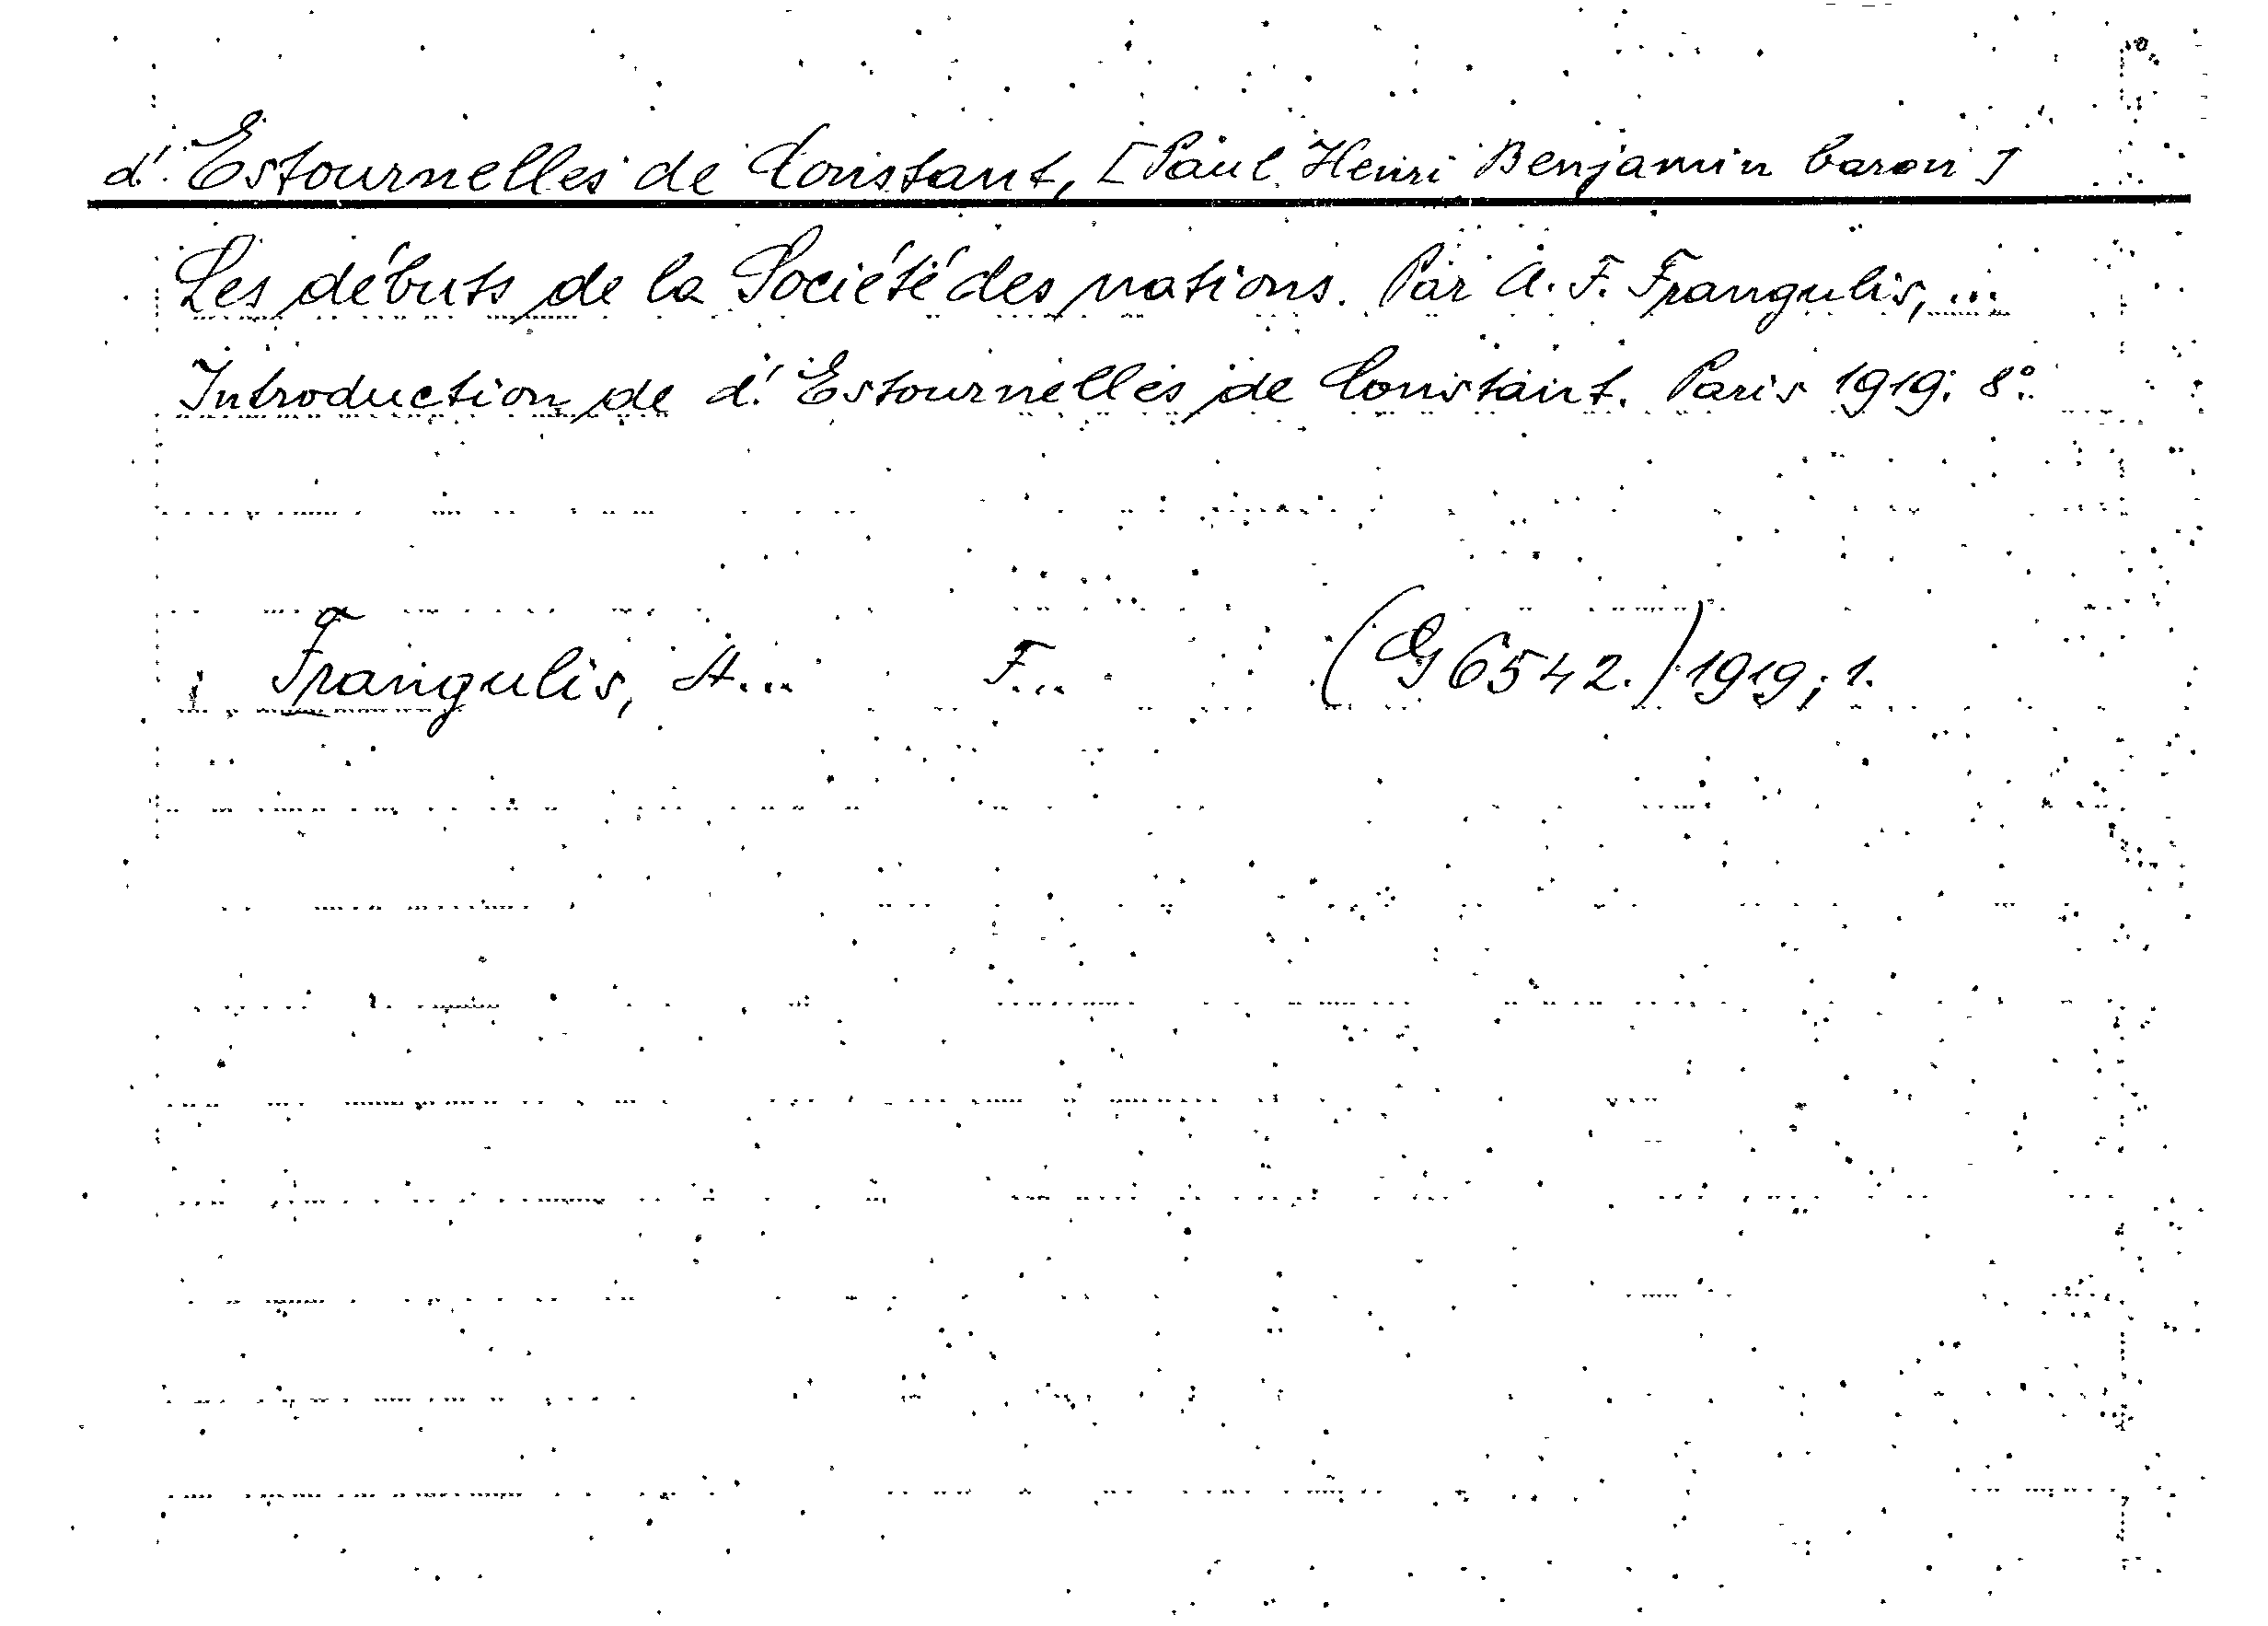 d'Estournelles de Constant, [Paul Henri Benjamin baron]
Les débuts de la Société des nations. Par A. F. Frangulis, ...
Introduction de d'Estournelles de Constant. Paris 1919. 8°.
i Frangulis, A... F... (G 6542.) 1919; 1.